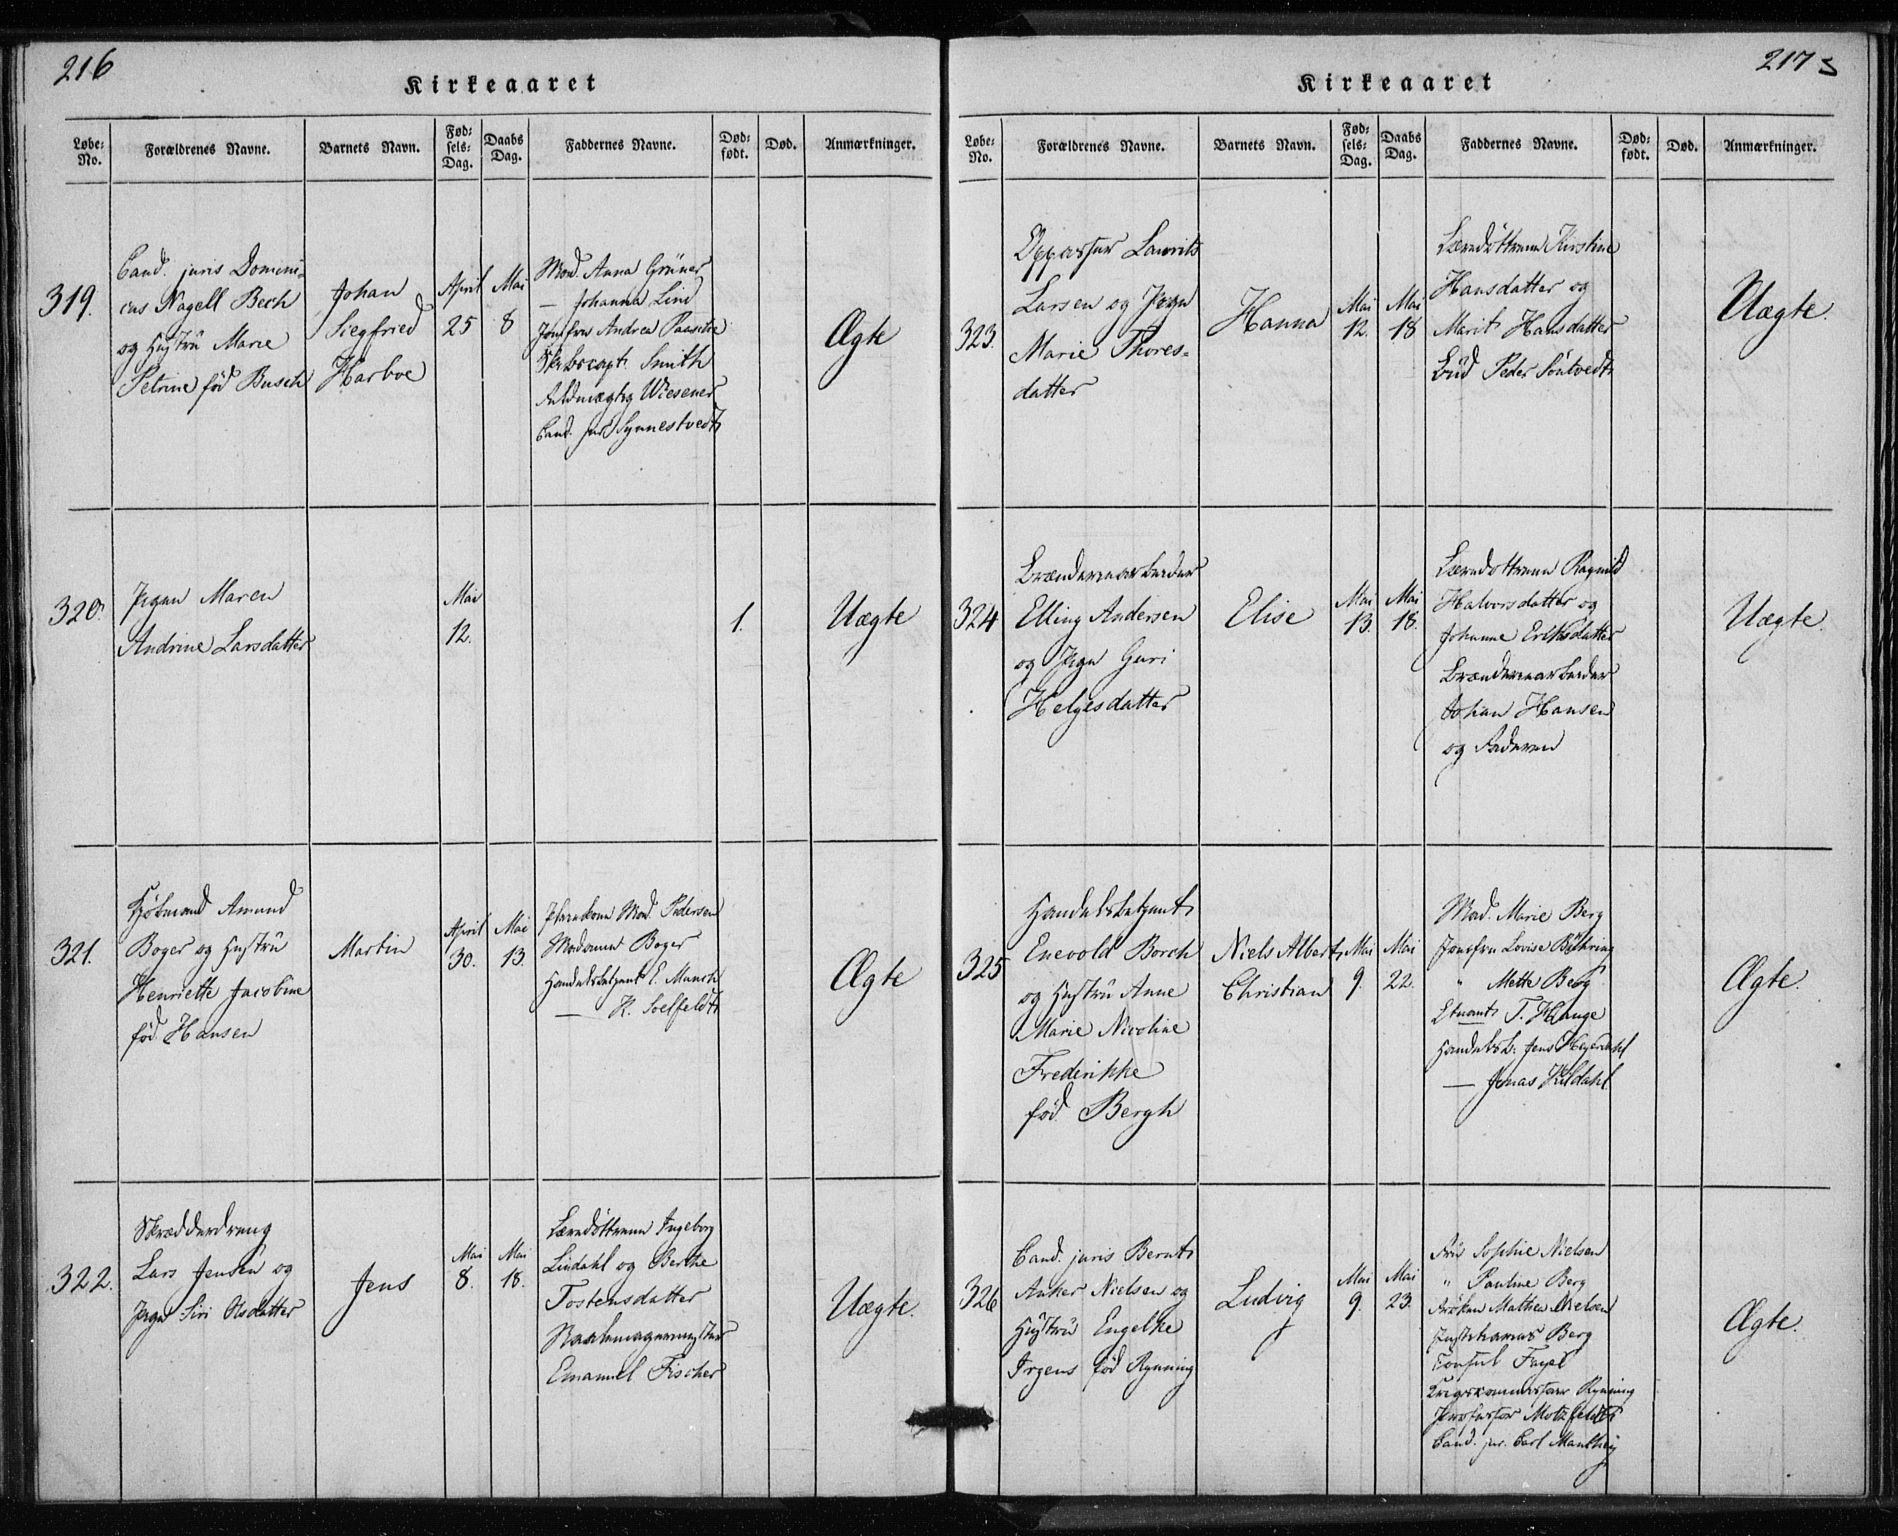 216
Kirkeaaret
Løbe-No. Forældrenes Navne. Barnets Navn. Fødsels-Dag. Daabs Dag. Faddernes Navne. Dødfødt. Død. Anmærkninger.
319.
Cand. juris Domeni-
cus Nagell Bech
og Hustrü Marie
Petrine fød Busch
Johan
Siegfried
Harboe
April
25
Mai
8
Mad. Anna Grüner
— Johanna Lind
Jomfru Andrea Paasche
Skibscapt. Smith
Fuldmægtig Wiesener
Cand. jur Synnestvedt
Ægte
320.
Pigen Maren
Andrine Larsdatter
Mai
12.
1.
Uægte
321.
Amund
Boger og Hustrü
Henriette Jacobine
fød Hansen
Martin
April
30.
Mai
13.
Mad. Pedersen
Madamme Boger
Handelsbetjent E. Munch
— H. Soelfeldt
Ægte
322.
Skrædderdreng
Lars Jensen og
Pige Siri Olsdatter
Jens
Mai
8.
Mai
18.
Ingeborg
Lindahl og Berthe
Tostensdatter
Emanuel Fischer
Uægte.
217
Kirkeaaret
Løbe-No. Forældrenes Navne. Barnets Navn. Fødsels-Dag. Daabs Dag. Faddernes Navne. Dødfødt. Død. Anmærkninger.
323.
Oppasser Laurits
Larsen og Pigen
Marie Thores-
datter
Hanna
Mai
12.
Mai
18
Kirstine
Hansdatter og
Marit Hansdatter
Büd Peder
Uægte.
324
Brænderiearbeider
Elling Andersen
og Pige Guri
Helgesdatter
Elise
Mai
13.
Mai
18.
Ragnild
Halvorsdatter og
Johanne Eriksdatter
Brænderiearbeider
Johan Hansen
og Faderen
Uægte.
325
Handelsbetjent
Enevold Borch
og Hustrü Anne
Marie Nicoline
Frederikke
fød Bergh
Niels Albert
Christian
Mai
9.
Mai
22.
Mad. Marie Berg
Jomfru Lovise Bühring
" Mette Berg
T. Hauge
Handelsb: Jens Heyerdahl
— Jonas Kildahl
Ægte.
326
Cand. juris Bernt
Anker Nielsen og
Hustrü Engelke
Irgens fød Rynning
Ludvig
Mai
9.
Mai
23.
Frü Sophie Nielsen
" Pauline Berg
Frøken Mathea Nielsen
Berg
Consul Faye
Krigscommissair Rynning
Professor Motzfeldt
Cand. jur. Carl Manthey
Ægte.